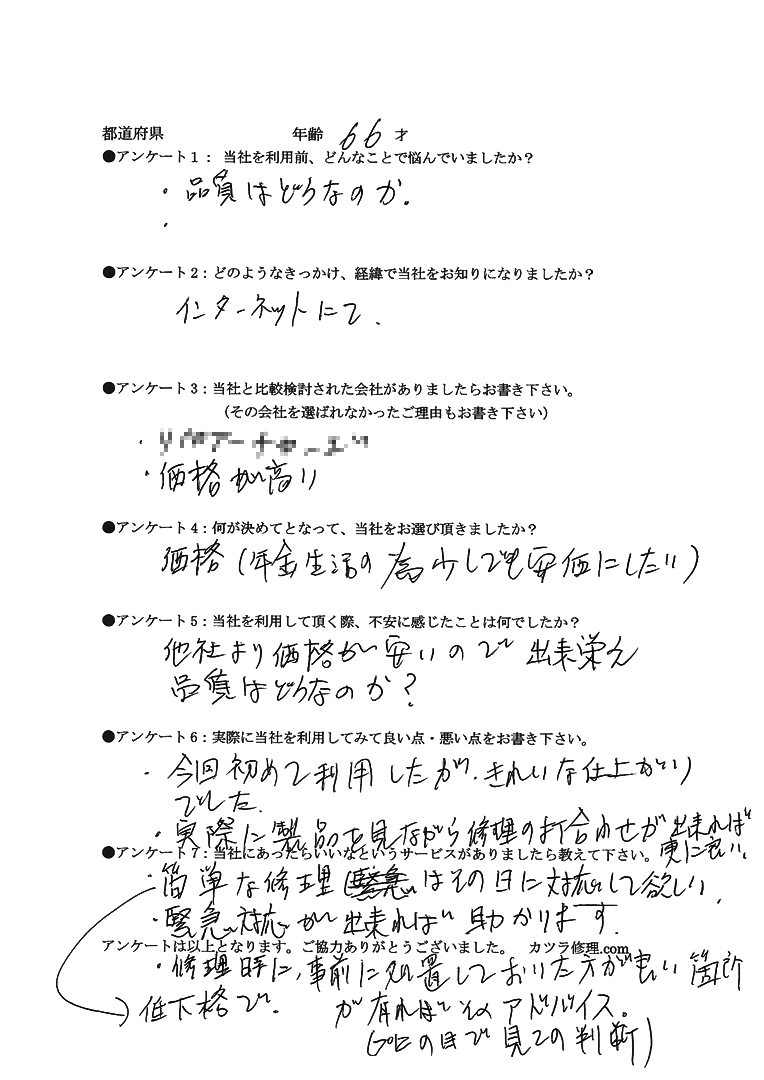 都道府県 年齢 66 才
●アンケート1： 当社を利用前、どんなことで悩んでいましたか？
・品質はどうなのか.
・
●アンケート2：どのようなきっかけ、経緯で当社をお知りになりましたか？
インターネットにて.
●アンケート3：当社と比較検討された会社がありましたらお書き下さい。
（その会社を選ばれなかったご理由もお書き下さい）
・
・価格が高い
●アンケート4：何が決めてとなって、当社をお選び頂きましたか？
価格(年金生活の為少しでも安価にしたい)
●アンケート5：当社を利用して頂く際、不安に感じたことは何でしたか？
他社より価格が安いので出来栄え
品質はどうなのか?
●アンケート6：実際に当社を利用してみて良い点・悪い点をお書き下さい。
・今回初めて利用したが、きれいな仕上がり
でした.
・実際に製品を見ながら修理の打合わせが出来れば
更に良い、
●アンケート7：当社にあったらいいなというサービスがありましたら教えて下さい。
・簡単な修理はその日に対応して欲しい.
・緊急対応が出来れば助かります.
アンケートは以上となります。ご協力ありがとうございました。 カツラ修理.com
・修理時に,事前に処置しておいた方が良い箇所
が有ればそのアドバイス。
(プロの目で見ての判断)
低下格で.